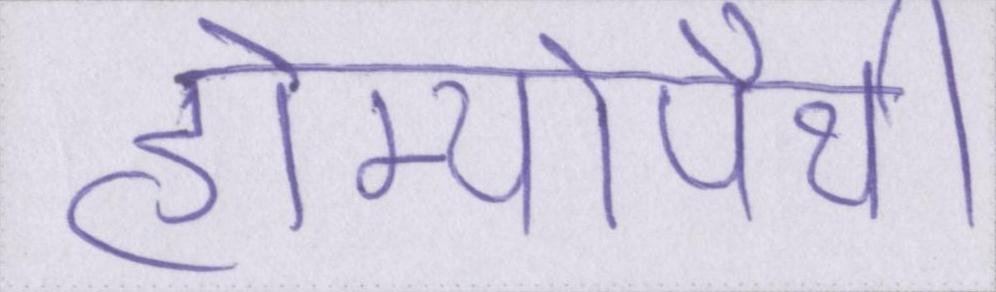 होम्योपैथी